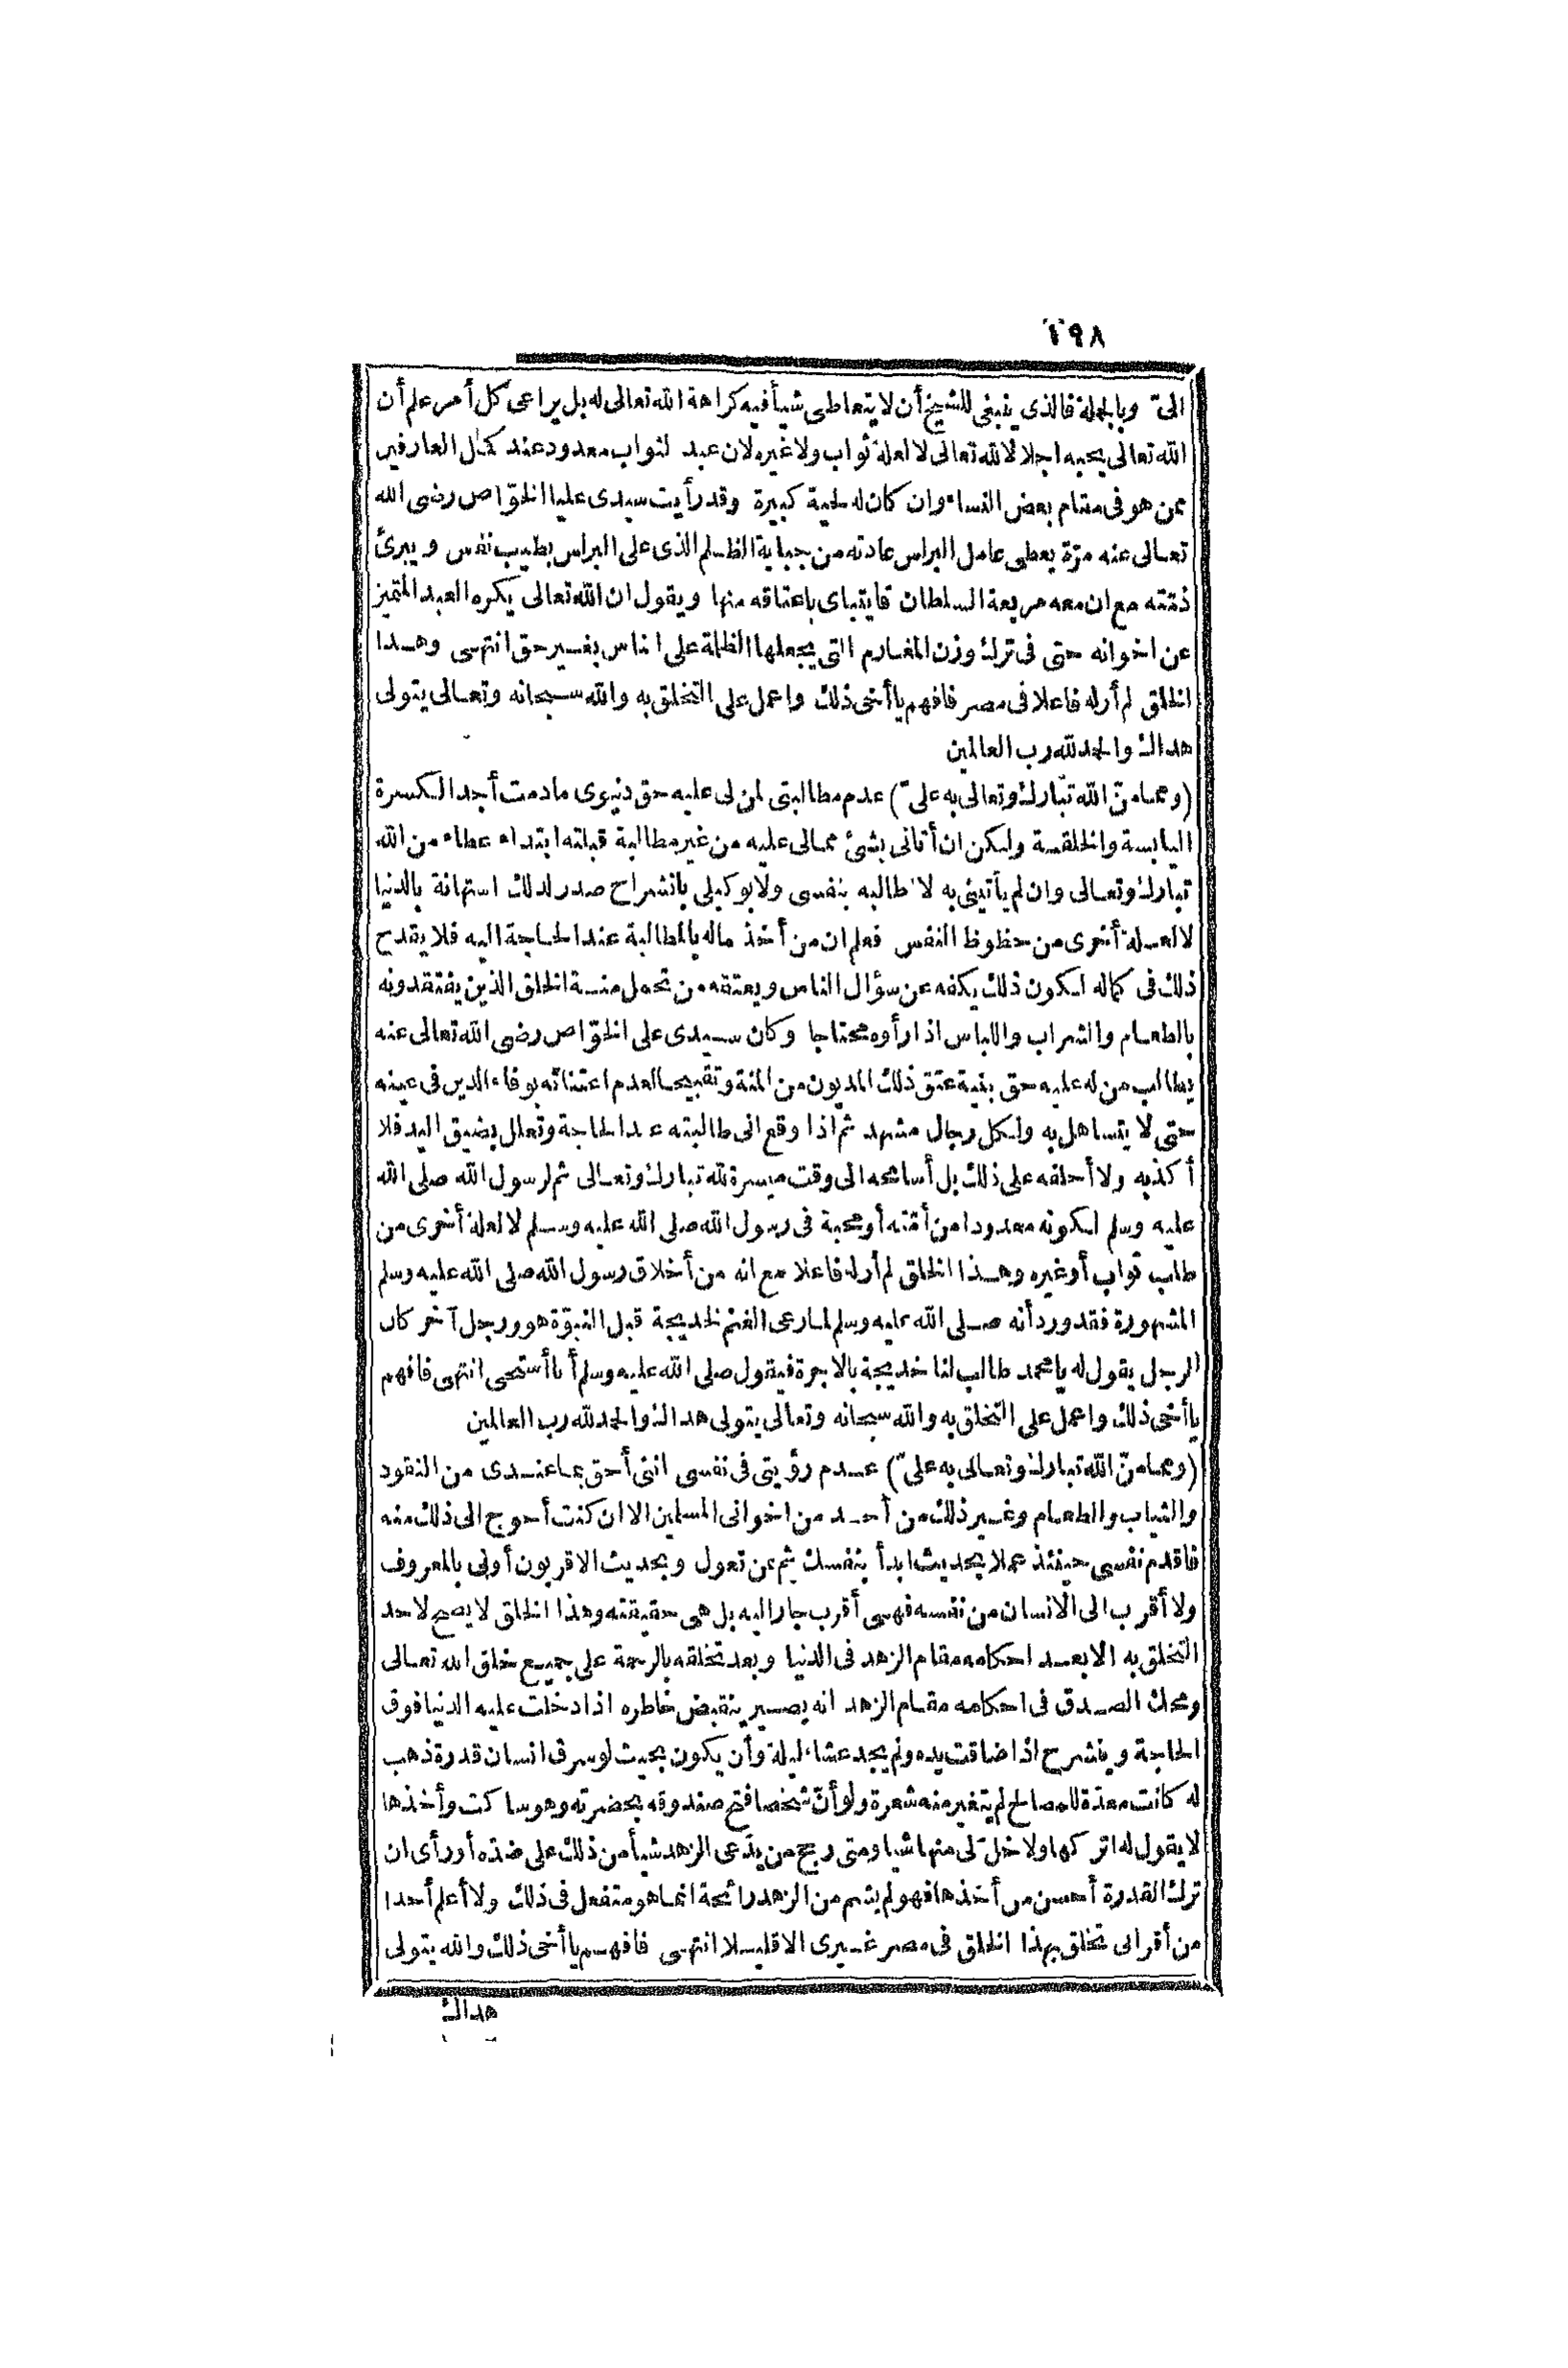 ٢٩٨
الىّ وبالجملة فالذى ينبغى للشيخ أن لا يتعاطى شيأ فيه كراهة الله تعالى له بل يراعى كل أمر علم أن
الله تعالى يحبه اجلالا لله تعالى لا لعلة ثواب ولا غيره لان عبد الثواب معدود عند كمل العارفين
ممن هو فى مقام بعض النساء وان كان له لحية كبيرة وقد رأيت سيدى عليا الخوّاص رضى الله
تعالى عنه مرّة يعطى عامل البراس عادته من جباية الظلم الذى على البراس بطيب نفس ويبرئ
ذمّته مع ان معه مربعة السلطان قايتباى باعتاقه منها ويقول ان الله تعالى يكره العبد المتميز
عن اخوانه حتى فى ترك وزن المغارم التى يجعلها الظلمة على الناس بغير حق انتهى وهذا
الخلق لم أر له فاعلا فى مصر فافهم يا أخى ذلك واعمل على التخلق به والله سبحانه وتعالى يتولى
هداك والحمد لله رب العالمين
(ومما منّ الله تبارك وتعالى به علىّ) عدم مطالبتى لمن لى عليه حق دنيوى ما دمت أجد الكسرة
اليابسة والخلقة ولكن ان أتانى بشئ مما لى عليه من غير مطالبة قبلته ابتداء عطاء من الله
تبارك وتعالى وان لم يأتينى به لا أطالبه بنفسى ولا بوكيلى بانشراح صدر لذلك استهانة بالدنيا
لا لعلة أخرى من حظوظ النفس فعلم ان من أخذ ماله بالمطالبة عند الحاجة اليه فلا يقدح
ذلك فى كماله لكون ذلك يكفه عن سؤال الناس ويعتقه من تحمل منة الخلق الذين يفتقدونه
بالطعام والشراب واللباس اذا رأوه محتاجا وكان سيدى على الخوّاص رضى الله تعالى عنه
يطالب من له عليه حق بنية عتق ذلك المديون من المنة وتقبيحا لعدم اعتنائه بوفاء الدين فى عينه
حتى لا يتساهل به ولكل رجال مشهد ثم اذا وقع انى طالبته عند الحاجة وتعلل بضيق اليد فلا
أكذبه ولا أحلفه على ذلك بل أسامحه الى وقت ميسرة لله تبارك وتعالى ثم لرسول الله صلى الله
عليه وسلم لكونه معدودا من أمّته أو محبة فى رسول الله صلى الله عليه وسلم لا لعلة أخرى من
طلب ثواب أو غيره وهذا الخلق لم أر له فاعلا مع انه من أخلاق رسول الله صلى الله عليه وسلم
المشهورة فقد ورد أنه صلى الله عليه وسلم لما رعى الغنم لخديجة قبل النبوّة هو ورجل آخر كان
الرجل يقول له يا محمد طالب لنا خديجة بالاجرة فيقول صلى الله عليه وسلم أنا أستحى انتهى فافهم
يا أخى ذلك واعمل على التخلق به والله سبحانه وتعالى يتولى هداك والحمد لله رب العالمين
(ومما منّ الله تبارك وتعالى به علىّ) عدم رؤيتى فى نفسى اننى أحق بما عندى من النقود
والثياب والطعام وغير ذلك من أحد من اخوانى المسلمين الا ان كنت أحوج الى ذلك منه
فاقدم نفسى حينئذ عملا بحديث ابدأ بنفسك ثم بمن تعول وبحديث الاقربون أولى بالمعروف
ولا أقرب الى الانسان من نفسه فهى أقرب جار اليه بل هى حقيقته وهذا الخلق لا يصح لاحد
التخلق به الا بعد احكامه مقام الزهد فى الدنيا وبعد تخلقه بالرحمة على جميع خلق الله تعالى
ومحك الصدق فى احكامه مقام الزهد انه يصير ينقبض خاطره اذا دخلت عليه الدنيا فوق
الحاجة وينشرح اذا ضاقت يده ولم يجد عشاء ليلة وأن يكون بحيث لو سرق انسان قدرة ذهب
له كانت معدّة للمصالح لم يتغير منه شعرة ولو أنّ شخصا فتح صندوقه بحضرته وهو ساكت وأخذها
لا يقول له اتركها ولا خلّ لى منها شيا ومتى رجح من يدّعى الزهد شيأ من ذلك على ضدّه أو رأى ان
ترك القدرة أحسن من أخذها فهو لم يشم من الزهد رائحة انما هو متفعل فى ذلك ولا أعلم أحدا
من أقرانى تخلق بهذا الخلق فى مصر غيرى الا قليلا انتهى فافهم يا أخى ذلك والله يتولى
هداك